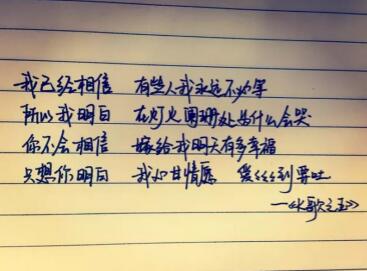 我已经相信 有些人我永远不必等
所以我明白 在灯火阑珊处为什么会哭
你不会相信 嫁给我明天有多幸福
只想你明白 我心甘情愿 爱爱爱到要吐
—《K歌之王》